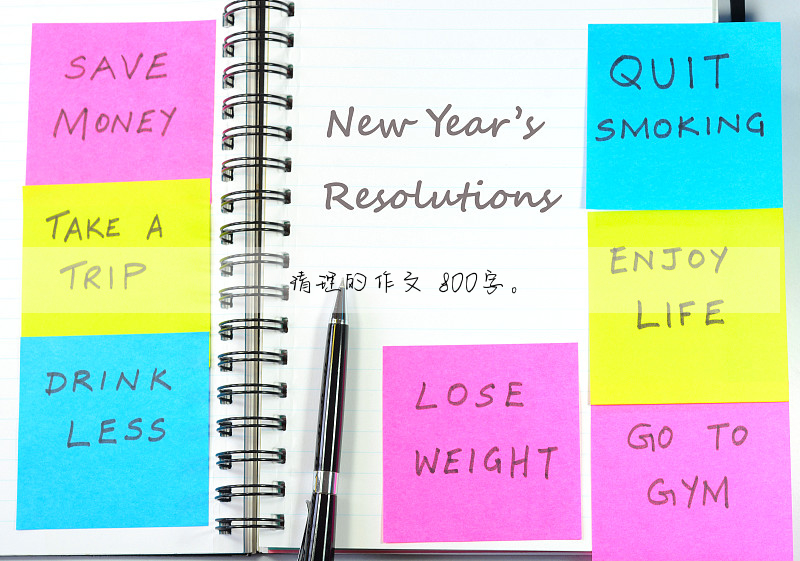 SAVE
MONEY
TAKE A
TRIP
DRINK
LESS
New Year's
Resolutions
清理的作文 800字。
LOSE
WEIGHT
QUIT
SMOKING
ENJOY
LIFE
GO TO
GYM